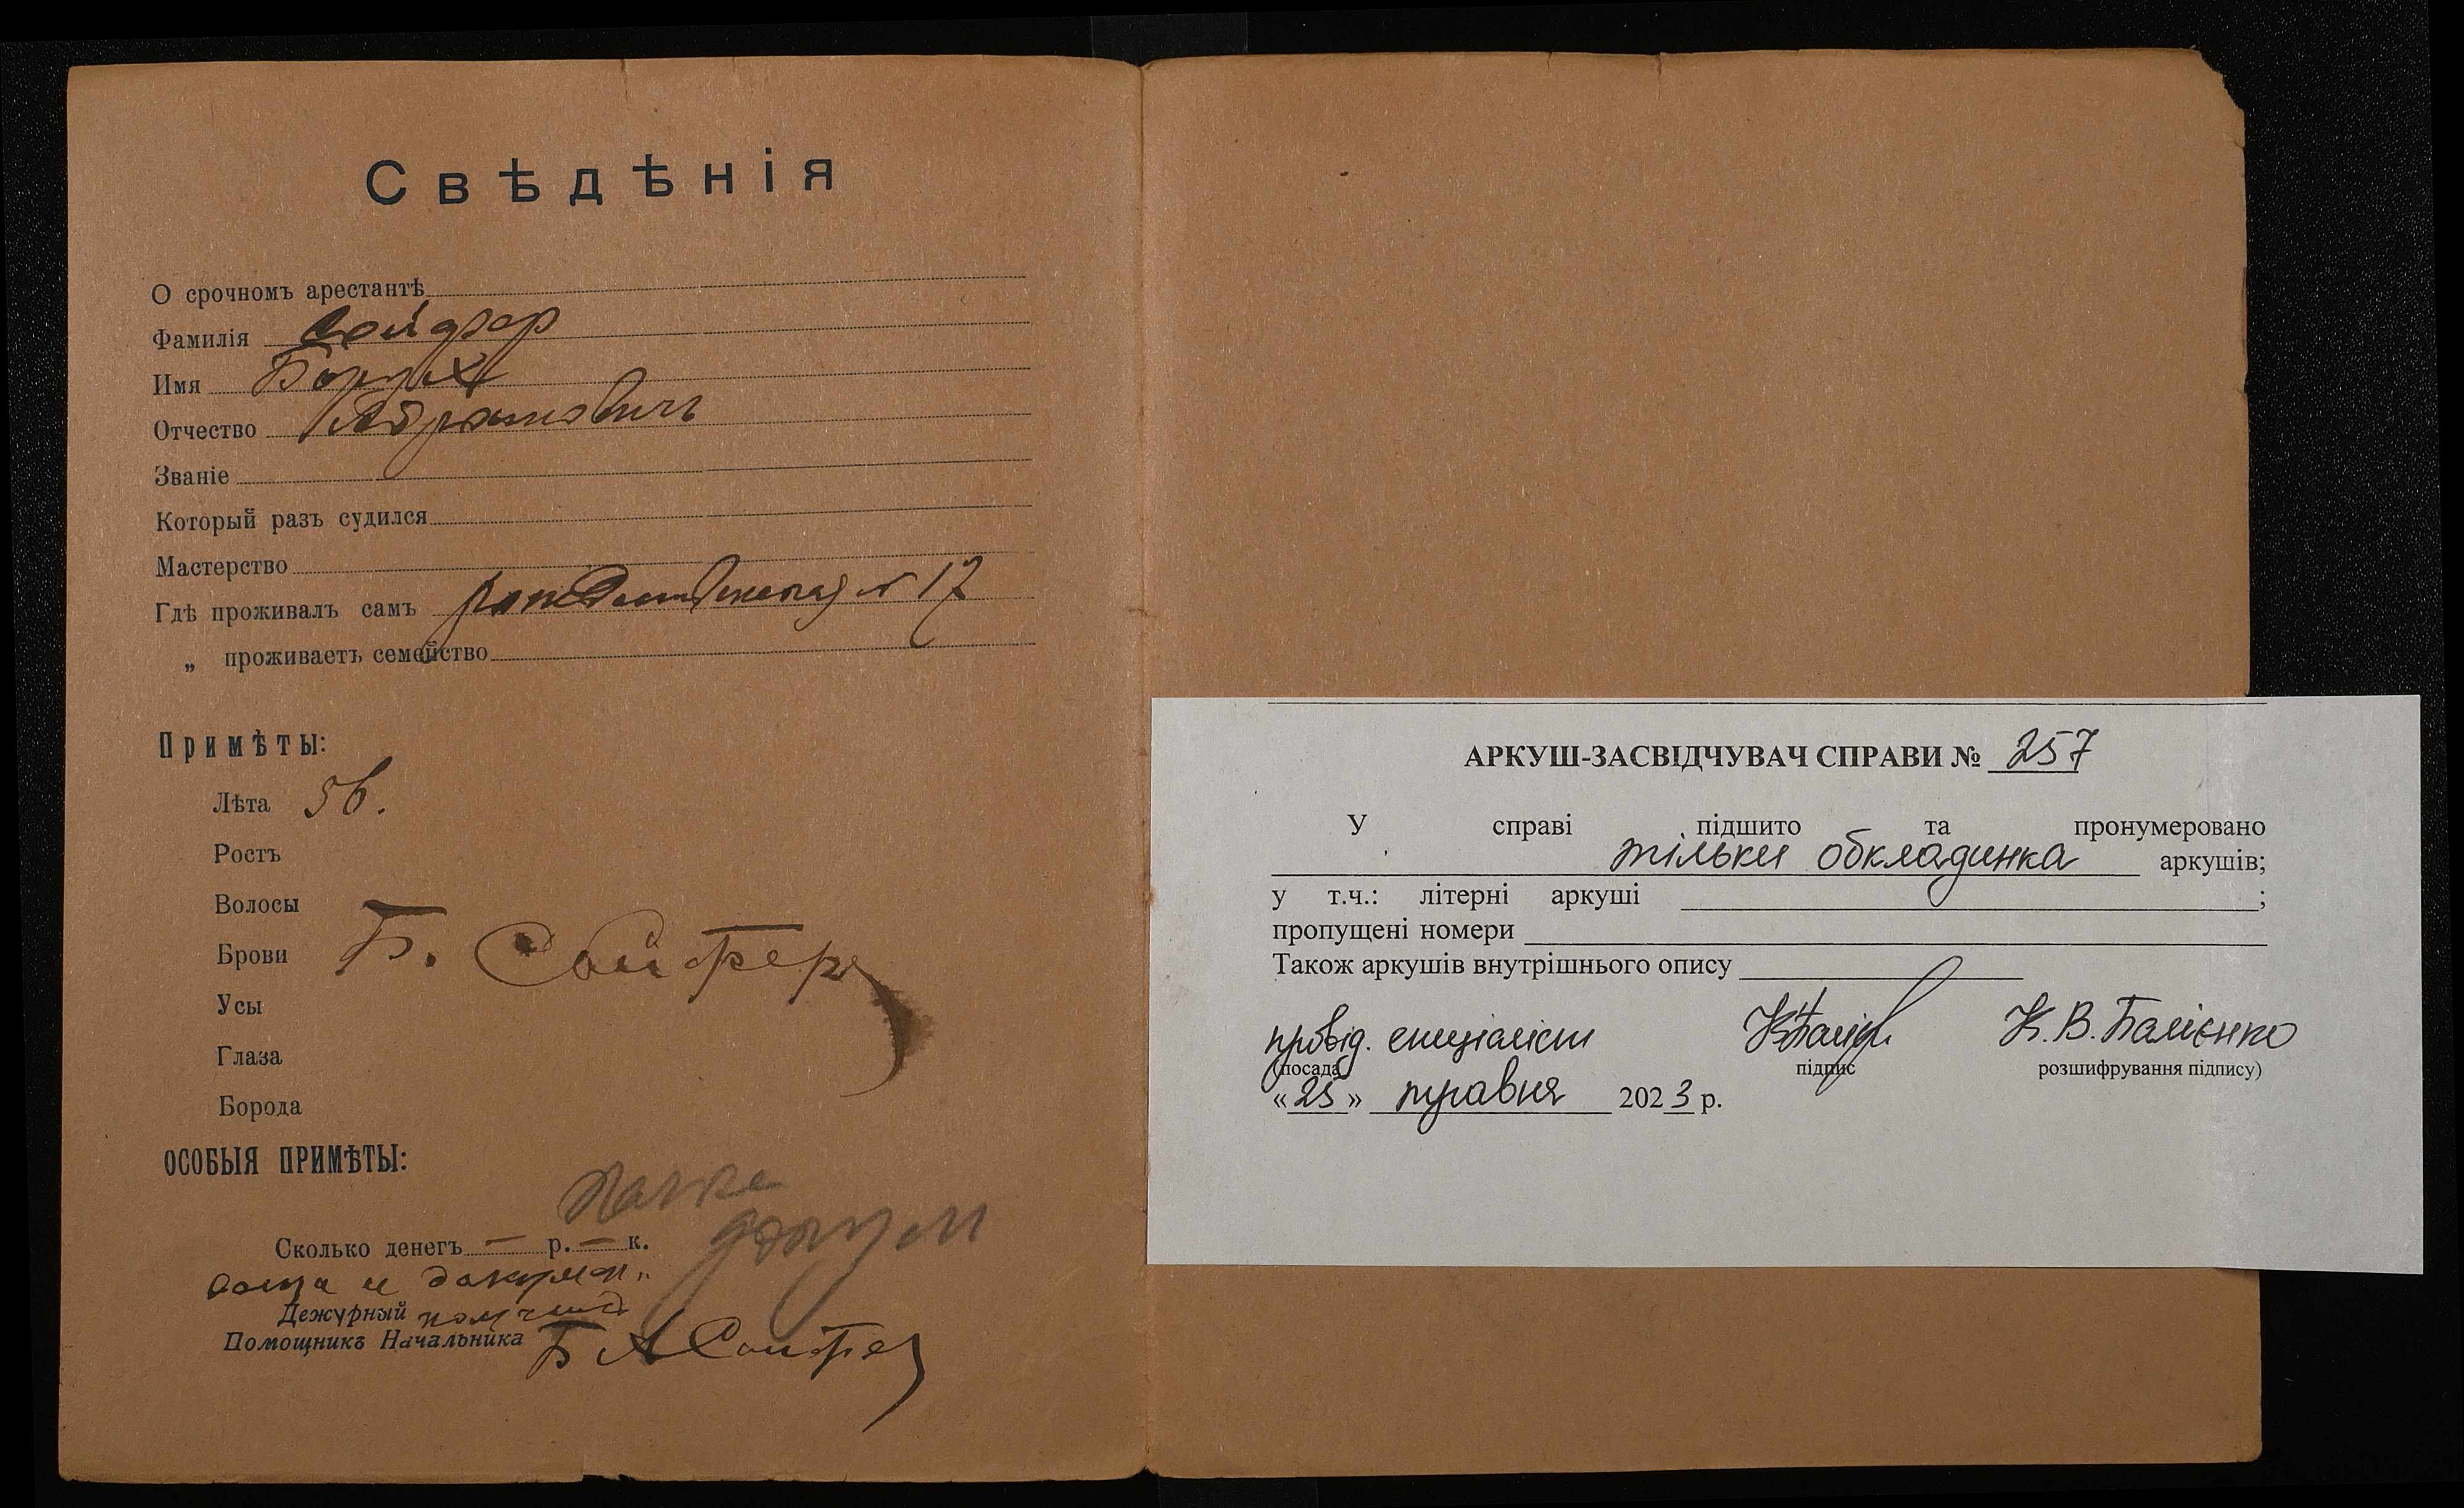 Свѣдѣнія
О срочномъ арестантѣ
Фамилія Сойфер
Имя Борух
Отчество Абрамовичъ
Званіе
Который разъ судился
Мастерство
Гдѣ проживалъ самъ рождественская № 17
„ проживаетъ семейство
Примѣты:
Лѣта 56.
Ростъ
Волосы
Брови
Б. Сойфер
Усы
Глаза
Борода
ОСОБЫЯ ПРИМѢТЫ:
Сколько денегъ — р. — к.
и докумен.
Дежурный
Помощникъ Начальника
Б А Сойфер
АРКУШ-ЗАСВІДЧУВАЧ СПРАВИ № 257
У справі підшито та пронумеровано
тільки обкладинка аркушів;
у т.ч.: літерні аркуші ;
пропущені номери
Також аркушів внутрішнього опису
провід. спеціаліст К. В. Балієнко
(посада підпис розшифрування підпису)
«25» травня 2023 р.